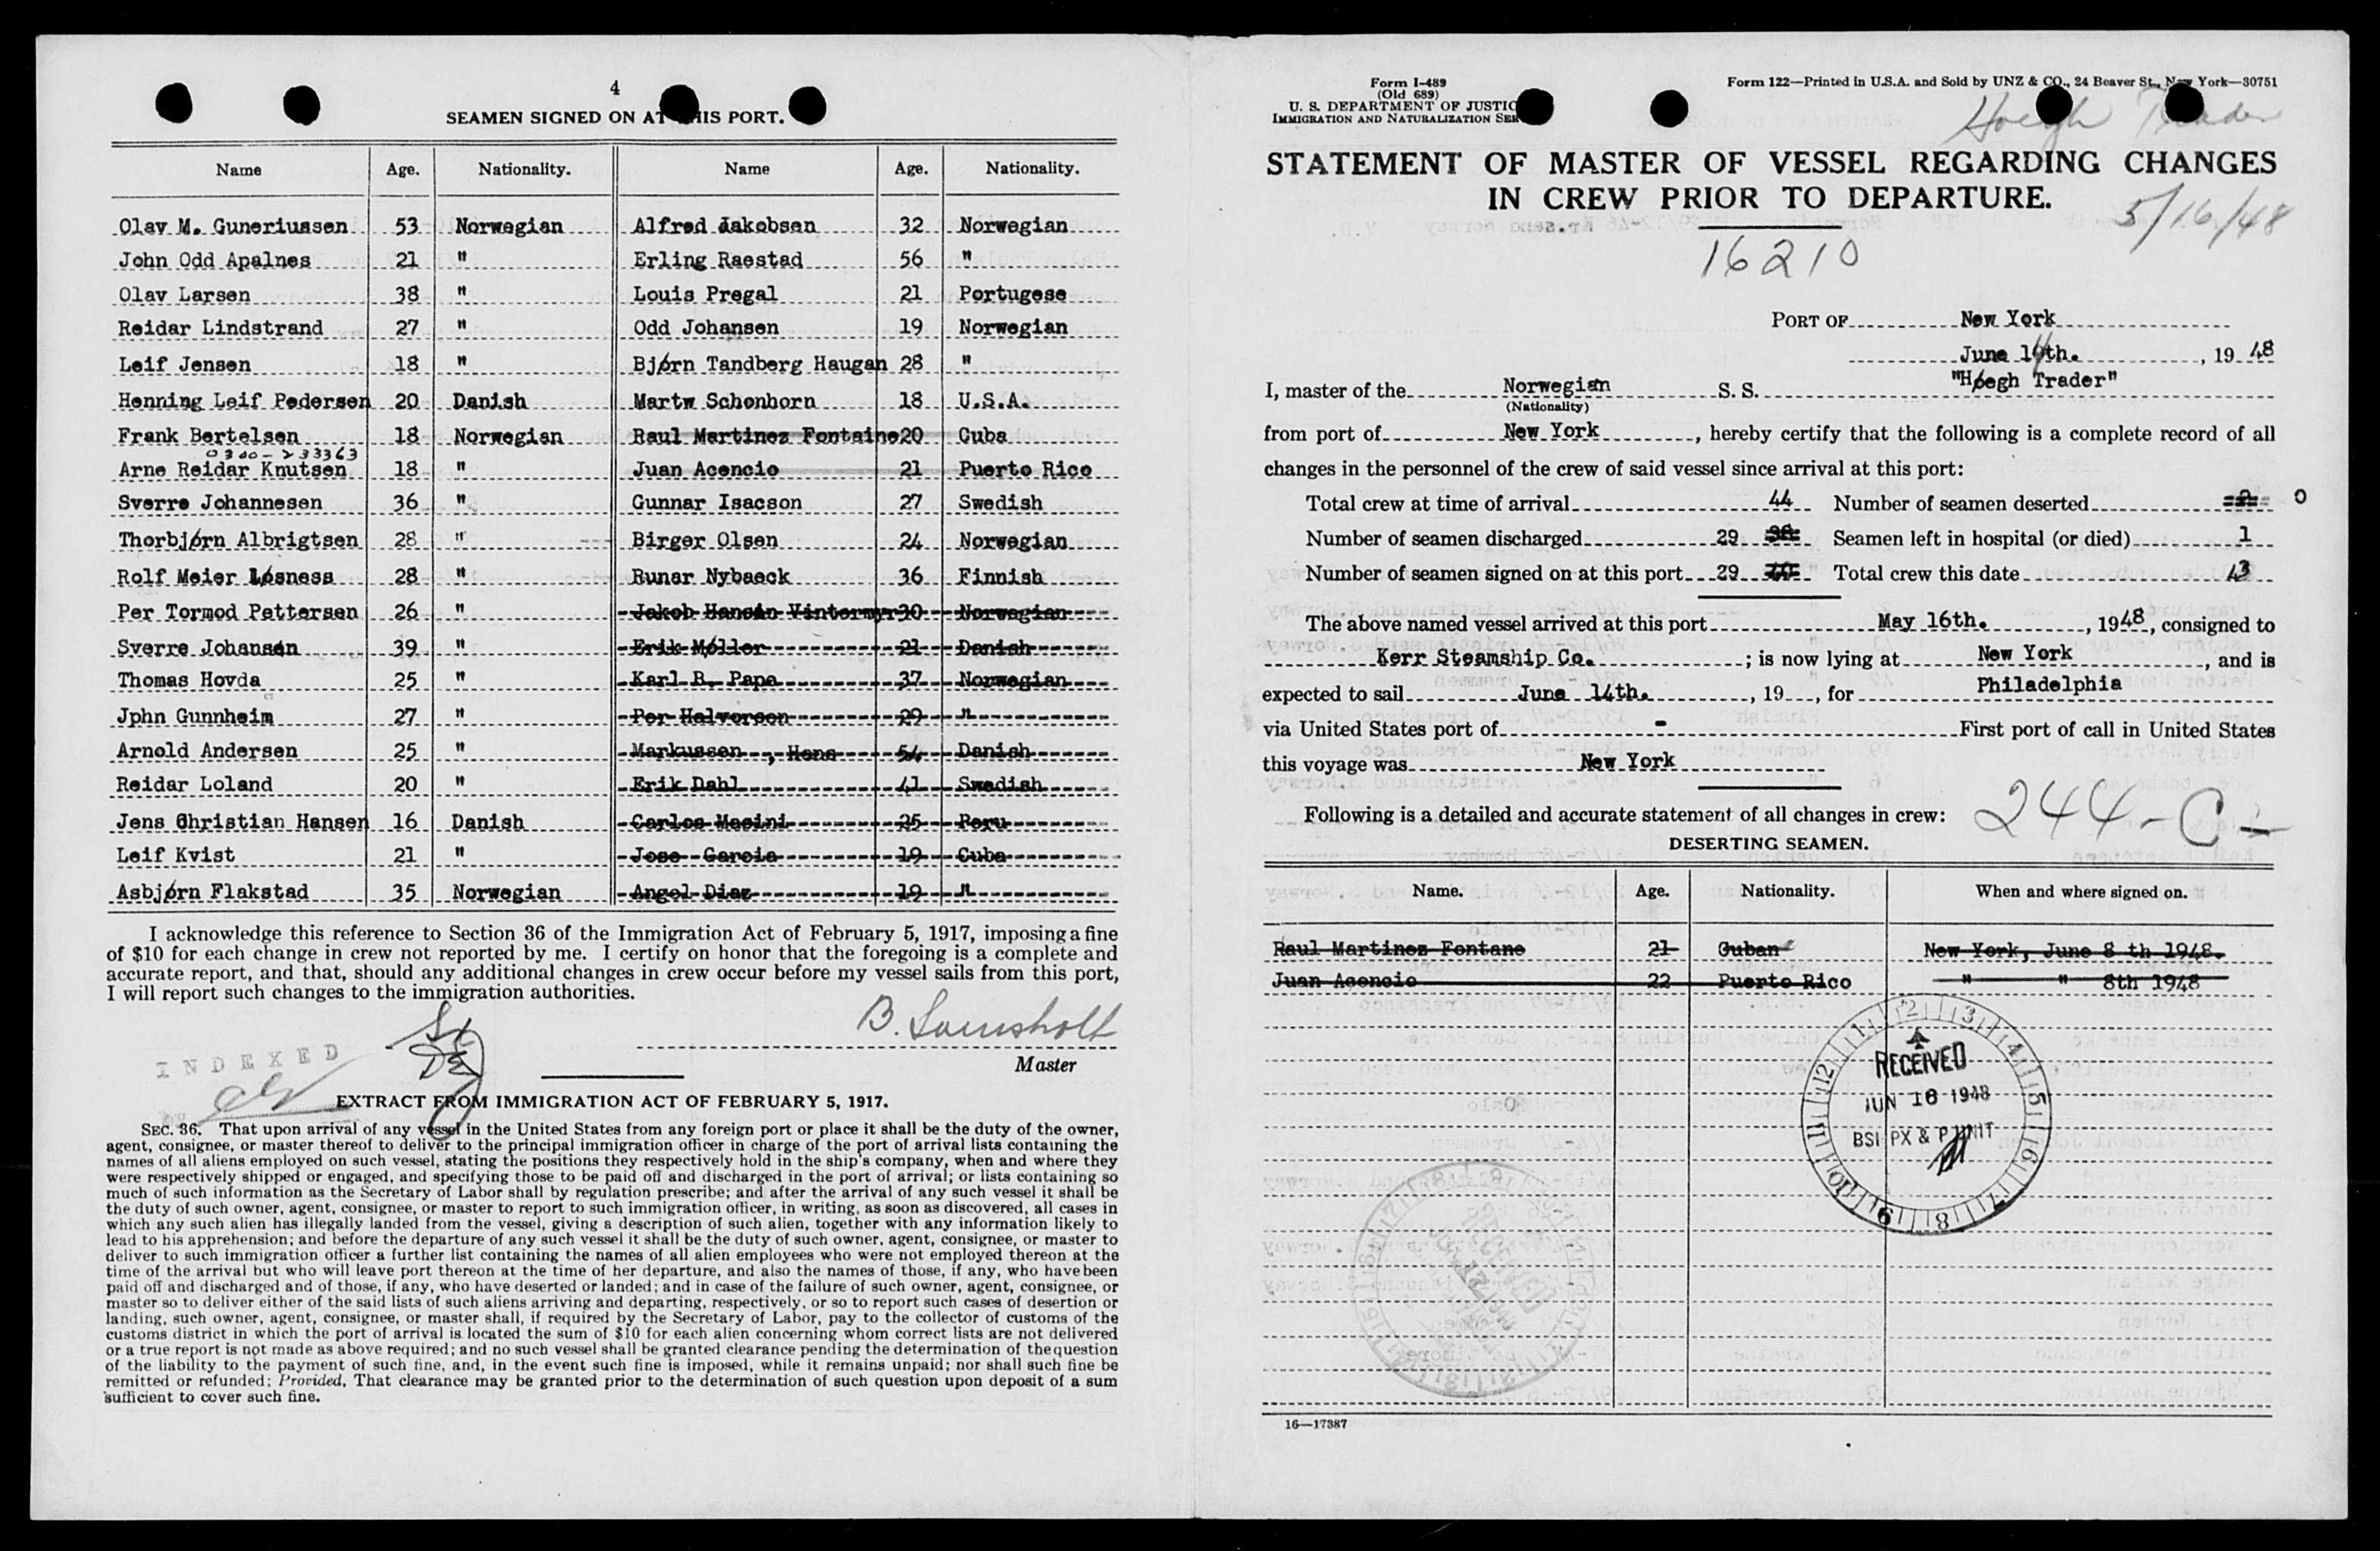 4
SEAMEN SIGNED ON AT THIS PORT.
Name Age. Nationality. Name Age. Nationality.
Olav M. Guneriussen 53 Norwegian Alfred Jakobsen 32 Norwegian
John Odd Apalnes 21 " Erling Raestad 56 "
Olav Larsen 38 " Louis Pregal 21 Portugese
Reidar Lindstrand 27 " Odd Johansen 19 Norwegian
Leif Jensen 18 " Bjørn Tandberg Haugan 28 "
Henning Leif Pedersen 20 Danish Martw Schonhorn 18 U.S.A.
Frank Bertelsen 18 Norwegian Raul Martinez Fontaine 20 Cuba
0300-233363
Arne Reidar Knutsen 18 " Juan Acencio 21 Puerto Rico
Sverre Johannesen 36 " Gunnar Isacson 27 Swedish
Thorbjørn Albrigtsen 28 " Birger Olsen 24 Norwegian
Rolf Meier Løsness 28 " Runar Nybaeck 36 Finnish
Per Tormod Pettersen 26 " Jakob Hansen Vintermyr 30 Norwegian
Sverre Johansen 39 " Erik Møller 21 Danish
Thomas Hovda 25 " Karl B. Pape 37 Norwegian
Jphn Gunnheim 27 " Per Halvorsen 29 "
Arnold Andersen 25 " Markussen, Hans 54 Danish
Reidar Loland 20 " Erik Dahl 41 Swedish
Jens Christian Hansen 16 Danish Carlos Masini 25 Peru
Leif Kvist 21 " Jose Garcia 19 Cuba
Asbjørn Flakstad 35 Norwegian Angel Diaz 19 "
I acknowledge this reference to Section 36 of the Immigration Act of February 5, 1917, imposing a fine
of $10 for each change in crew not reported by me. I certify on honor that the foregoing is a complete and
accurate report, and that, should any additional changes in crew occur before my vessel sails from this port,
I will report such changes to the immigration authorities.
Master
INDEXED
EXTRACT FROM IMMIGRATION ACT OF FEBRUARY 5, 1917.
SEC. 36. That upon arrival of any vessel in the United States from any foreign port or place it shall be the duty of the owner,
agent, consignee, or master thereof to deliver to the principal immigration officer in charge of the port of arrival lists containing the
names of all aliens employed on such vessel, stating the positions they respectively hold in the ship's company, when and where they
were respectively shipped or engaged, and specifying those to be paid off and discharged in the port of arrival; or lists containing so
much of such information as the Secretary of Labor shall by regulation prescribe; and after the arrival of any such vessel it shall be
the duty of such owner, agent, consignee, or master to report to such immigration officer, in writing, as soon as discovered, all cases in
which any such alien has illegally landed from the vessel, giving a description of such alien, together with any information likely to
lead to his apprehension; and before the departure of any such vessel it shall be the duty of such owner, agent, consignee, or master to
deliver to such immigration officer a further list containing the names of all alien employees who were not employed thereon at the
time of the arrival but who will leave port thereon at the time of her departure, and also the names of those, if any, who have been
paid off and discharged and of those, if any, who have deserted or landed; and in case of the failure of such owner, agent, consignee, or
master so to deliver either of the said lists of such aliens arriving and departing, respectively, or so to report such cases of desertion or
landing, such owner, agent, consignee, or master shall, if required by the Secretary of Labor, pay to the collector of customs of the
customs district in which the port of arrival is located the sum of $10 for each alien concerning whom correct lists are not delivered
or a true report is not made as above required; and no such vessel shall be granted clearance pending the determination of the question
of the liability to the payment of such fine, and, in the event such fine is imposed, while it remains unpaid; nor shall such fine be
remitted or refunded: Provided, That clearance may be granted prior to the determination of such question upon deposit of a sum
sufficient to cover such fine.
Form I-489
(Old 689)
U. S. DEPARTMENT OF JUSTIC
IMMIGRATION AND NATURALIZATION SER
Form 122—Printed in U.S.A. and Sold by UNZ & CO., 24 Beaver St., New York—30751
Hoegh Trader
STATEMENT OF MASTER OF VESSEL REGARDING CHANGES
IN CREW PRIOR TO DEPARTURE.
5/16/48
16210
PORT OF New York
June 14th. , 19 48
I, master of the Norwegian S. S. "Høegh Trader"
(Nationality)
from port of New York , hereby certify that the following is a complete record of all
changes in the personnel of the crew of said vessel since arrival at this port:
Total crew at time of arrival 44 Number of seamen deserted 2 0
Number of seamen discharged 29 Seamen left in hospital (or died) 1
Number of seamen signed on at this port 29 Total crew this date 43
The above named vessel arrived at this port May 16th. , 1948, consigned to
Kerr Steamship Co. ; is now lying at New York , and is
expected to sail June 14th. , 19 , for Philadelphia
via United States port of - First port of call in United States
this voyage was New York
Following is a detailed and accurate statement of all changes in crew: 244-C-
DESERTING SEAMEN.
Name. Age. Nationality. When and where signed on.
Raul Martinez Fontane 21 Cuban New York, June 8 th 1948.
Juan Acencio 22 Puerto Rico " " 8th 1948
RECEIVED
JUN 16 1948
BSI PX & P UNIT
1 2 3 4 5 6 7 8 9 10 11 12
16—17387